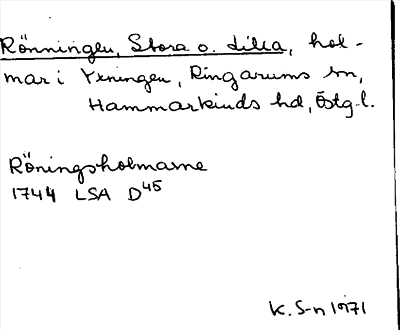 Rönningen, Stora o. Lilla, hol-
mar i Yxningen, Ringarums sn,
Hammarkinds hd, Östg. l.
Röningsholmarne
1744 LSA D45
K. S-n 1971